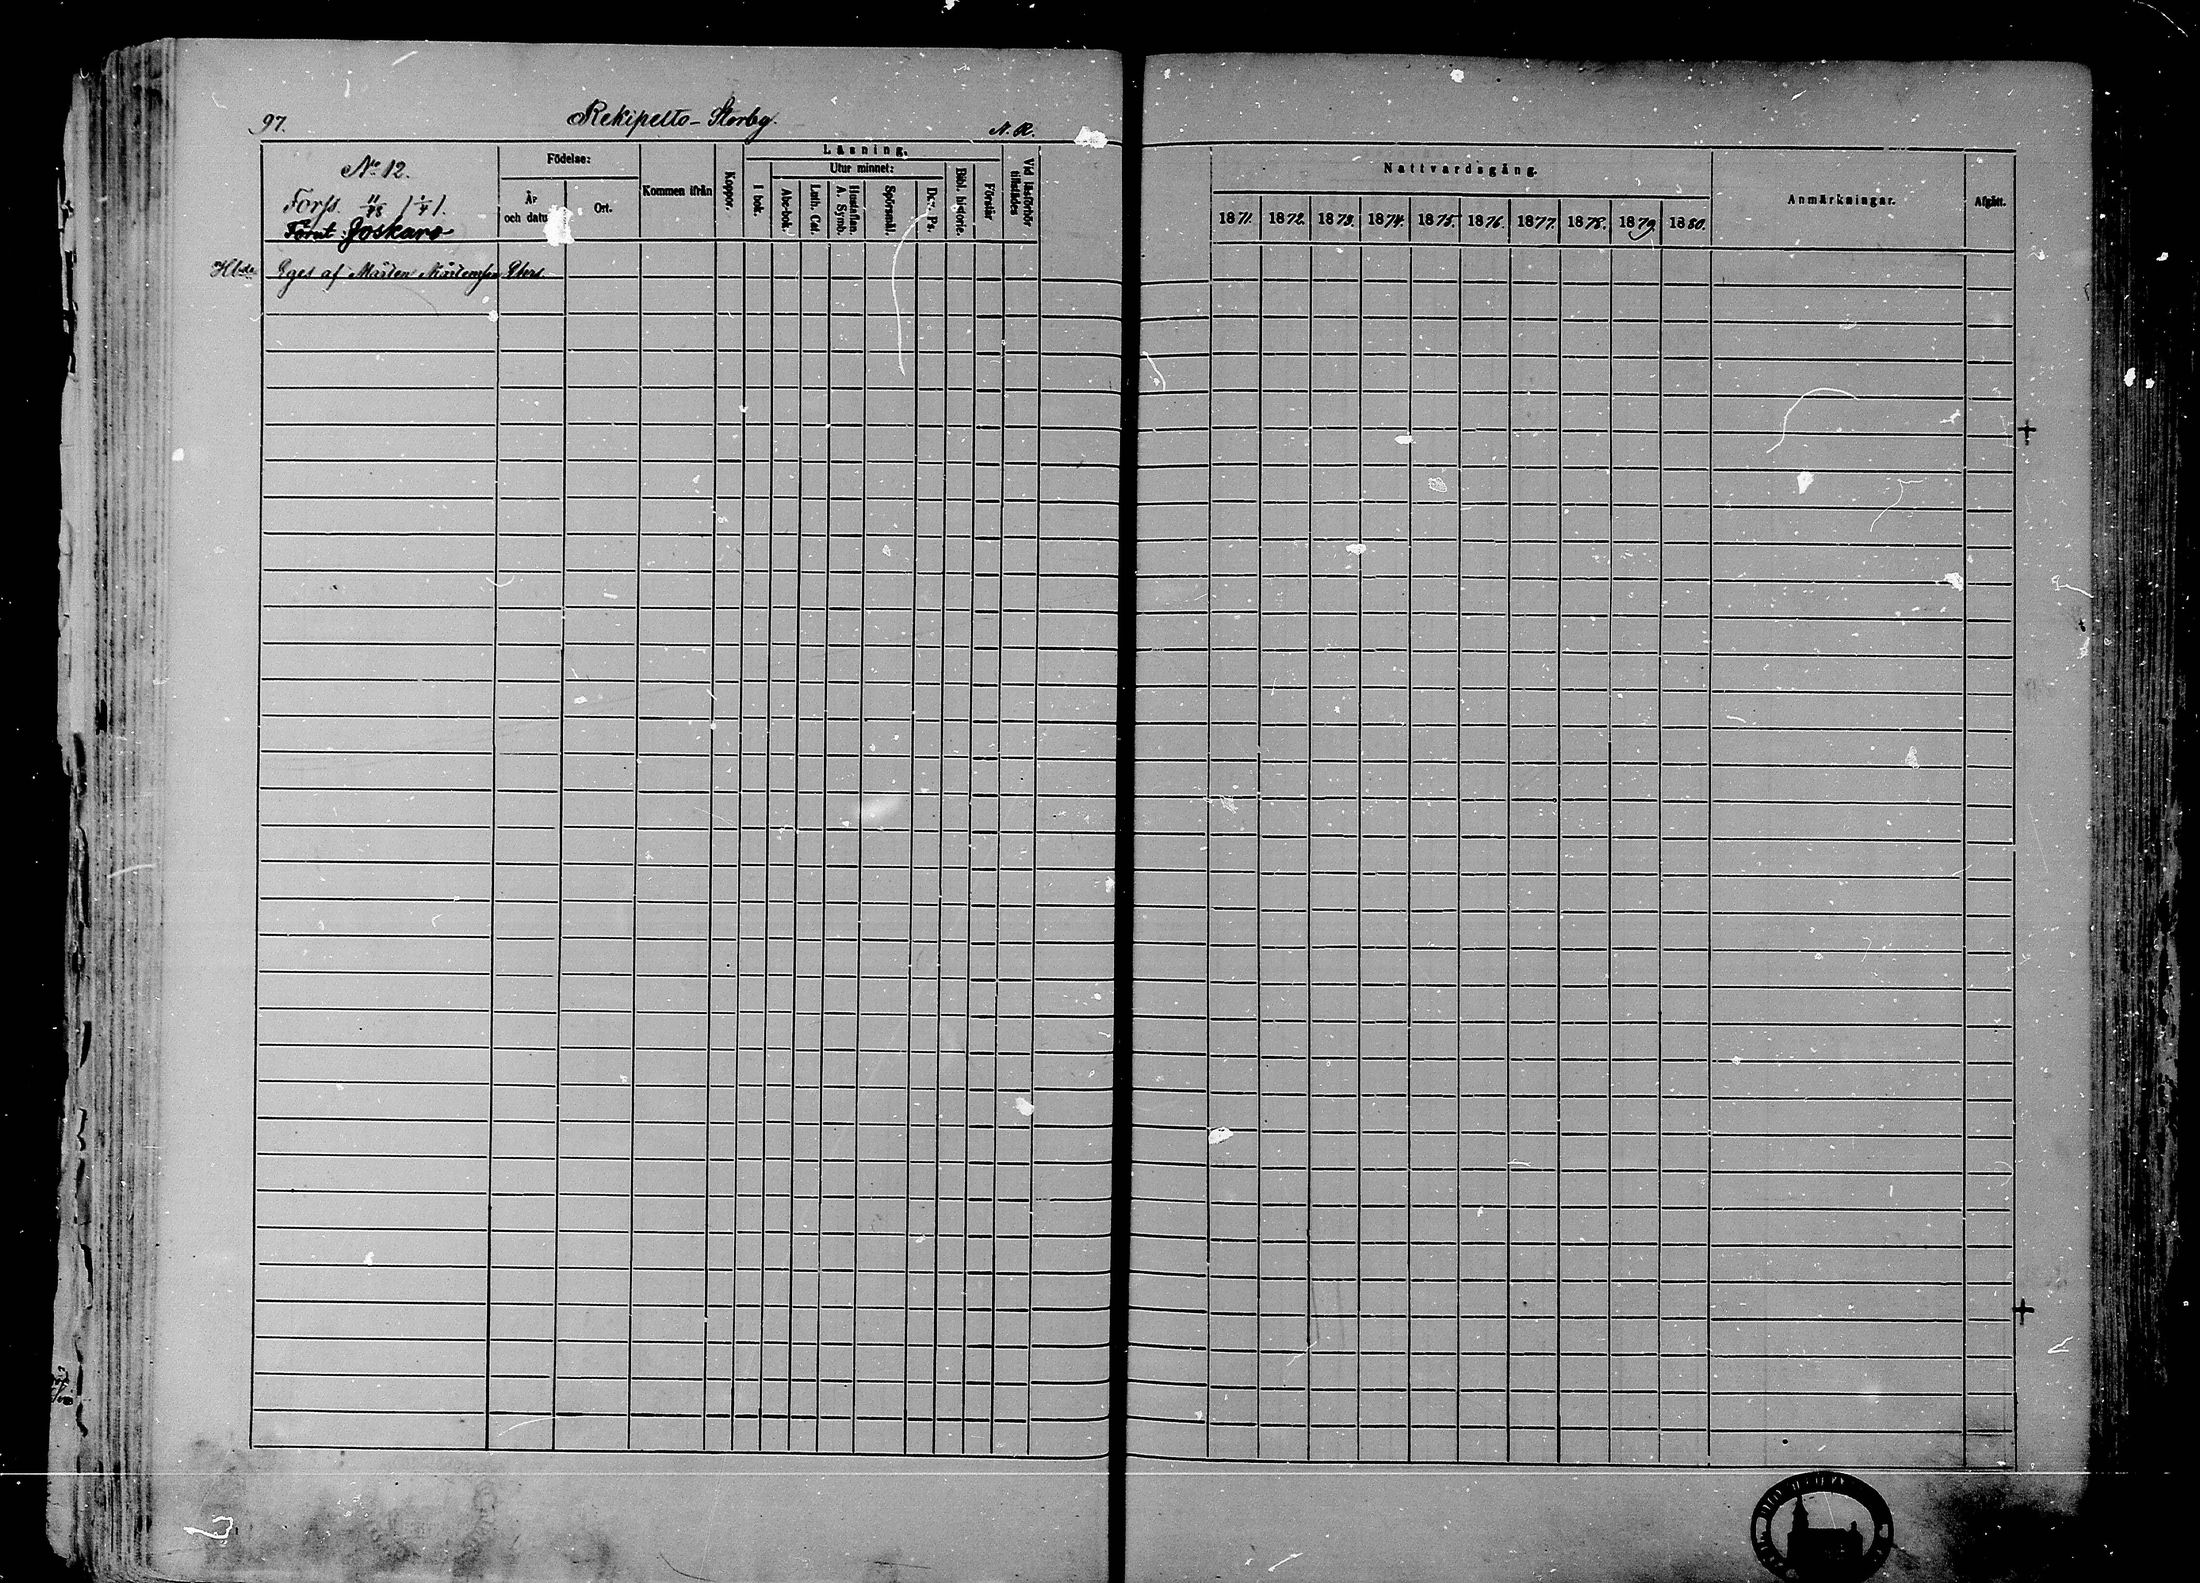 97. Rekipelto-Storby. N. R.
No 12.
Forss. 11/48 (1/4).
Förut: Joskars
Hbde Eges af Mårten Mårtensson
Födelse:
År och datu
Ort.
Kommen ifrån
Koppor.
Läsning.
I bok.
Utur minnet:
Abc-bok.
Luth. Cat.
Hustaflan. A. Symb.
Spörsmål.
Dav. Ps.
Bibl. historie.
Förstår
Vid läsförhör tillstädes
Nattvardsgång.
1871. 1872. 1873. 1874. 1875. 1876. 1877. 1878. 1879. 1880.
Anmärkningar.
Afgått.